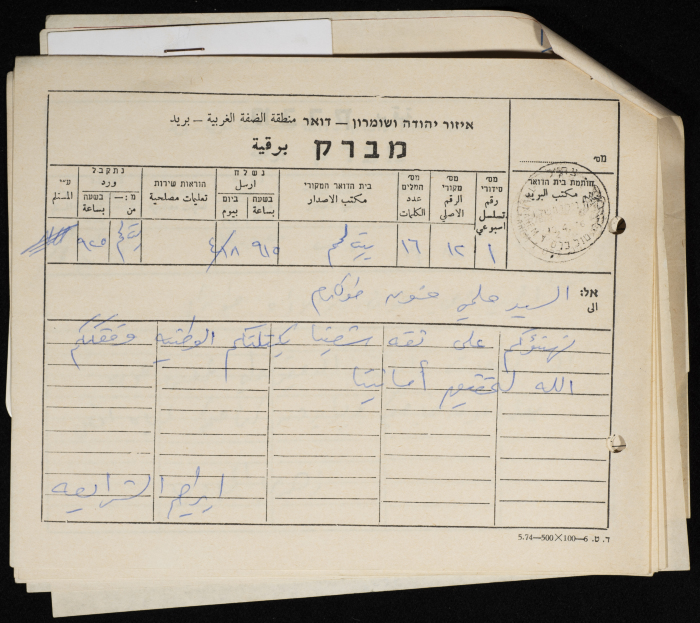 איזור יהודה ושומרון – דואר منطقة الضفة الغربية – بريد
מברק برقية
מס׳
חותמת בית הדואר
مكتب البريد
מס׳ סידורי رقم تسلسل اسبوعي
מס׳ מקורי الرقم الاصلي
מס׳ המלים عدد الكلمات
בית הדואר המקורי مكتب الاصدار
נשלח ارسل
בשעה بساعة
ביום بيوم
הוראות שירות تعليمات مصلحية
נתקבל ورد
מ:— من
בשעה بساعة
ע״י المستلم
١ ١٢ ١٦ بيت لحم ٩١٥ ٤/١٨ ٩٢٥
אל: السيد حلمي حنون طولكرم
الى
نهنؤكم على ثقة شعبنا بكتلتكم الوطنية وفقكم
الله لتحقيق أمانينا
ابراهيم الشرايعه
ד. ט. 6—100×500—5.74